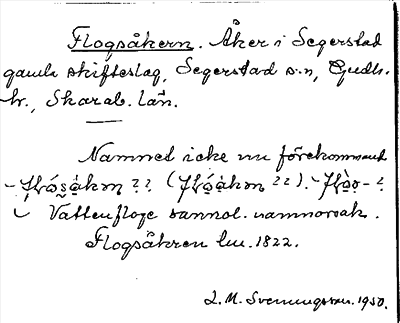 Flogsåkern. Åker i Segerstad
gamla skifteslag, Segerstad s:n, Gudh.
hr., Skarab. län.
Namnet icke nu förekommande
Vattenfloge sannol. namnorsak.
Flogsåkren lm. 1822.
L. M. Svenungsson. 1930.